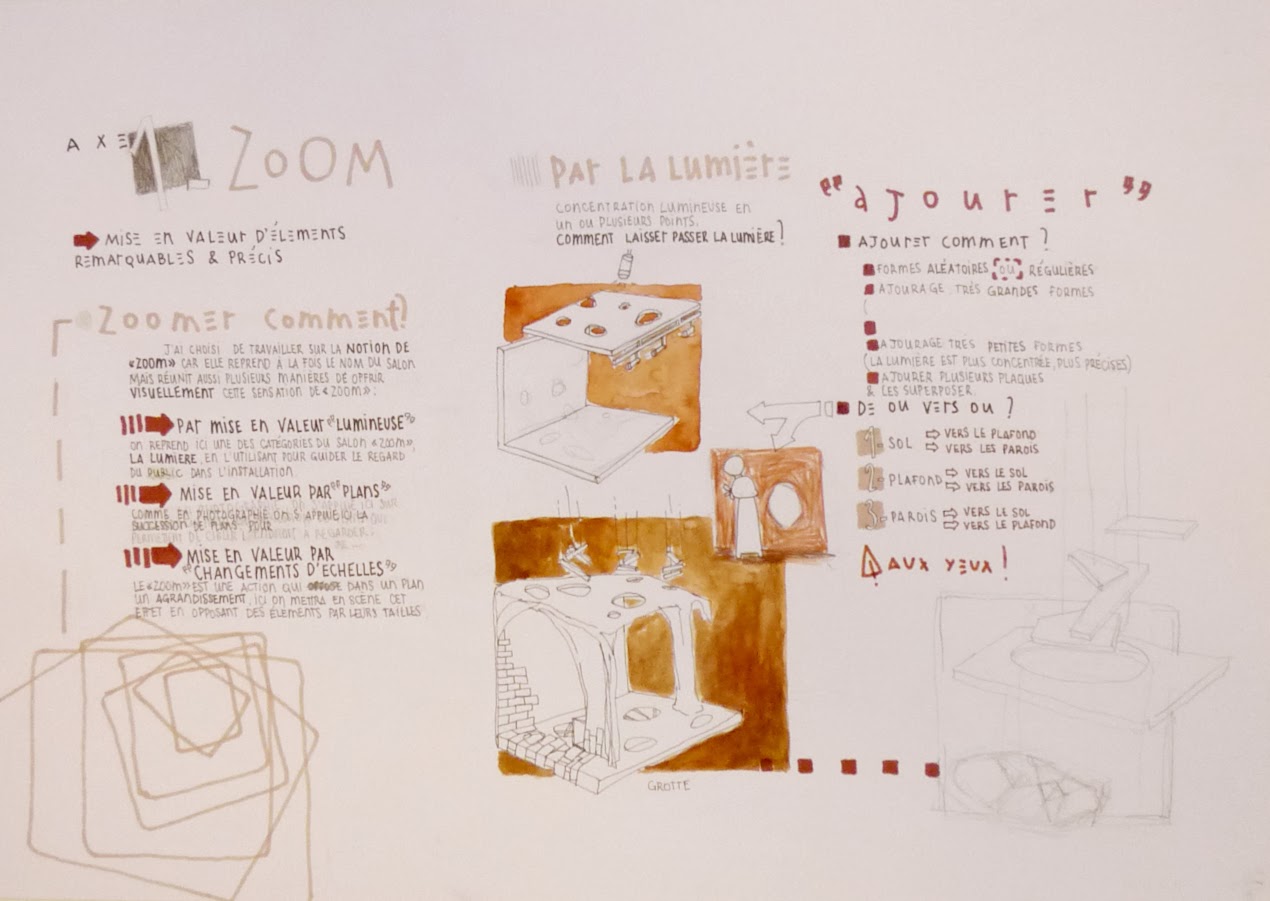 AXE 1 ZOOM
MISE EN VALEUR D'ÉLEMENTS
REMARQUABLES & PRÉCIS
ZOOMER COMMENT?
J'AI CHOISI DE TRAVAILLER SUR LA NOTION DE
«ZOOM» CAR ELLE REPREND À LA FOIS LE NOM DU SALON
MAIS RÉUNIT AUSSI PLUSIEURS MANIÈRES DE OFFRIR
VISUELLEMENT CETTE SENSATION DE «ZOOM».
PAR MISE EN VALEUR "LUMINEUSE"
ON REPREND ICI UNE DES CATÉGORIES DU SALON «ZOOM»,
LA LUMIÈRE, EN L'UTILISANT POUR GUIDER LE REGARD
DU PUBLIC DANS L'INSTALLATION.
MISE EN VALEUR PAR "PLANS"
COMME EN PHOTOGRAPHIE ON S'APPUIE ICI LA
SUCCESSION DE PLANS POUR
À REGARDER.
MISE EN VALEUR PAR
"CHANGEMENTS D'ECHELLES"
LE «ZOOM» EST UNE ACTION QUI DANS UN PLAN
UN AGRANDISSEMENT, ICI ON METTRA EN SCÈNE CET
EFFET EN OPPOSANT DES ÉLEMENTS PAR LEURS TAILLES
PAR LA LUMIÈRE
CONCENTRATION LUMINEUSE EN
UN OU PLUSIEURS POINTS.
COMMENT LAISSER PASSER LA LUMIÈRE?
GROTTE
"AJOURER"
AJOURER COMMENT?
FORMES ALÉATOIRES OU RÉGULIÈRES
AJOURAGE TRÈS GRANDES FORMES
(
AJOURAGE TRES PETITES FORMES
(LA LUMIÈRE EST PLUS CONCENTRÉE, PLUS PRÉCISES)
AJOURER PLUSIEURS PLAQUES
& LES SUPERPOSER.
DE OU VERS OU?
1. SOL ⇨ VERS LE PLAFOND
⇨ VERS LES PAROIS
2. PLAFOND ⇨ VERS LE SOL
⇨ VERS LES PAROIS
3. PAROIS ⇨ VERS LE SOL
⇨ VERS LE PLAFOND
AUX YEUX!